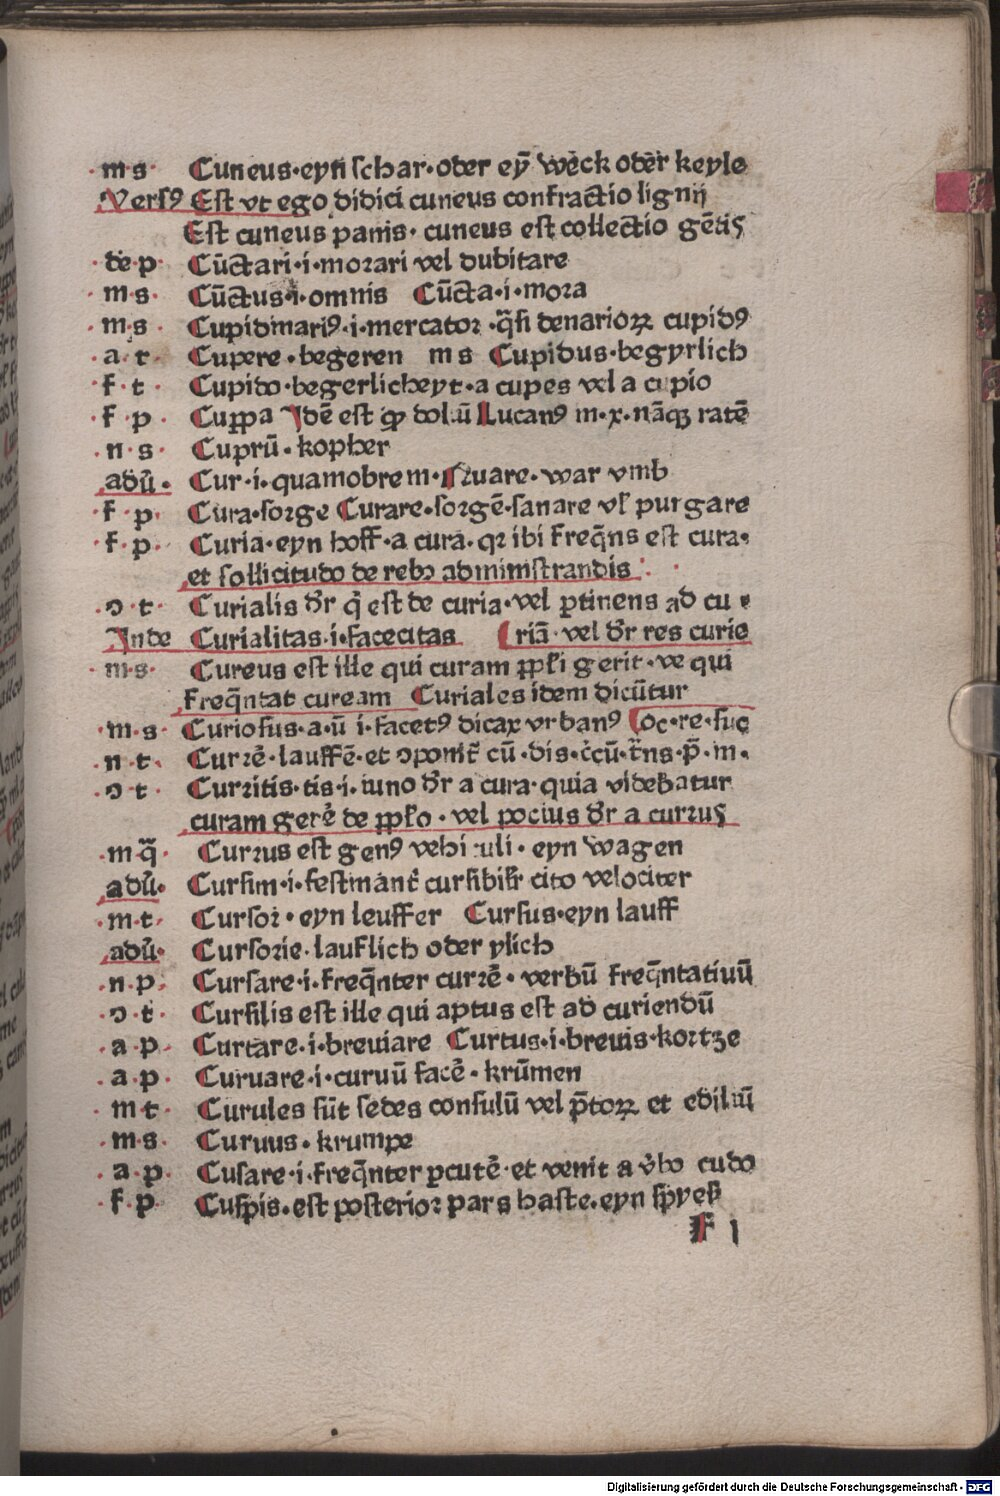 m s Cuneus·eyn schar·oder eỹ weck oder keyle
Versꝰ Est vt ego didici cuneus confractio lignij
Est cuneus panis· cuneus est collectio gētis
de·p· Cūctari·i·morari vel dubitare
m·s· Cūctus·i·omnis Cūcta·i·mora
m·s Cupidinariꝰ·i·mercator·q̄si denarioꝝ cupidꝰ
a·t· Cupere·begeren m s Cupidus·begyrlich
f·t· Cupido·begerlicheyt·a cupes vel a cupio
f·p· Cuppa Idē est qp̄ doliū Lucanꝰ in·x·nāqꝫ ratē
n·s· Cuprū·kopher
adū· Cur·i·quamobrem·Quare·war vmb
f·p· Cura·sorge Curare·sorgē·sanare vl̓ purgare
f·p· Curia·eyn hoff·a cura·qꝛ ibi freq̄ns est cura·
et sollicitudo de rebꝫ administrandis
ꝯ·t· Curialis dr̄ q̇ est de curia·vel ꝑtinens ad cu
Inde Curialitas·i·facecitas (riā·vel dr̄ res curie
m·s· Cureus est ille qui curam ppl̓i gerit·ve qui
freq̄ntat cuream Curiales idem dicūtur
m·s Curiosus·a·ū i·facetꝰ dicax vrbanꝰ (oc·re·suc
n t· Currē·lauffē·et ꝯponit̄ cū·dis·c̄cū·tn̄s·p̄·in·
ꝯ t· Curritis·tis·i·iuno dr̄ a cura·quia videbatur
curam gerē de pplo·vel pocius dr̄ a currus
m·q̄· Currus est genꝰ vehiculi·eyn wagen
adū· Cursim·i·festinant̄ cursibilr̄ cito velociter
m·t· Cursor·eyn leuffer Cursus·eyn lauff
adū· Cursorie·lauflich oder ylich
n·p· Cursare·i·freq̄nter currē·verbū freq̄ntatiuū
ꝯ·t· Cursilis est ille qui aptus est ad curiendū
a·p· Curtare·i·breuiare Curtus·i·breuis·kortze
a·p· Curuare·i·curuū facē·krūmen
m t· Curules sūt sedes consulū vel p̄toꝝ et ediliū
m·s· Curuus·krumpe
a·p· Cusare·i·freq̄nter ꝑcutē·et venit a v̄bo cudo
f·p Cuspis·est posterior pars haste·eyn spyeß
F 1
Digitalisierung gefördert durch die Deutsche Forschungsgemeinschaft - DFG